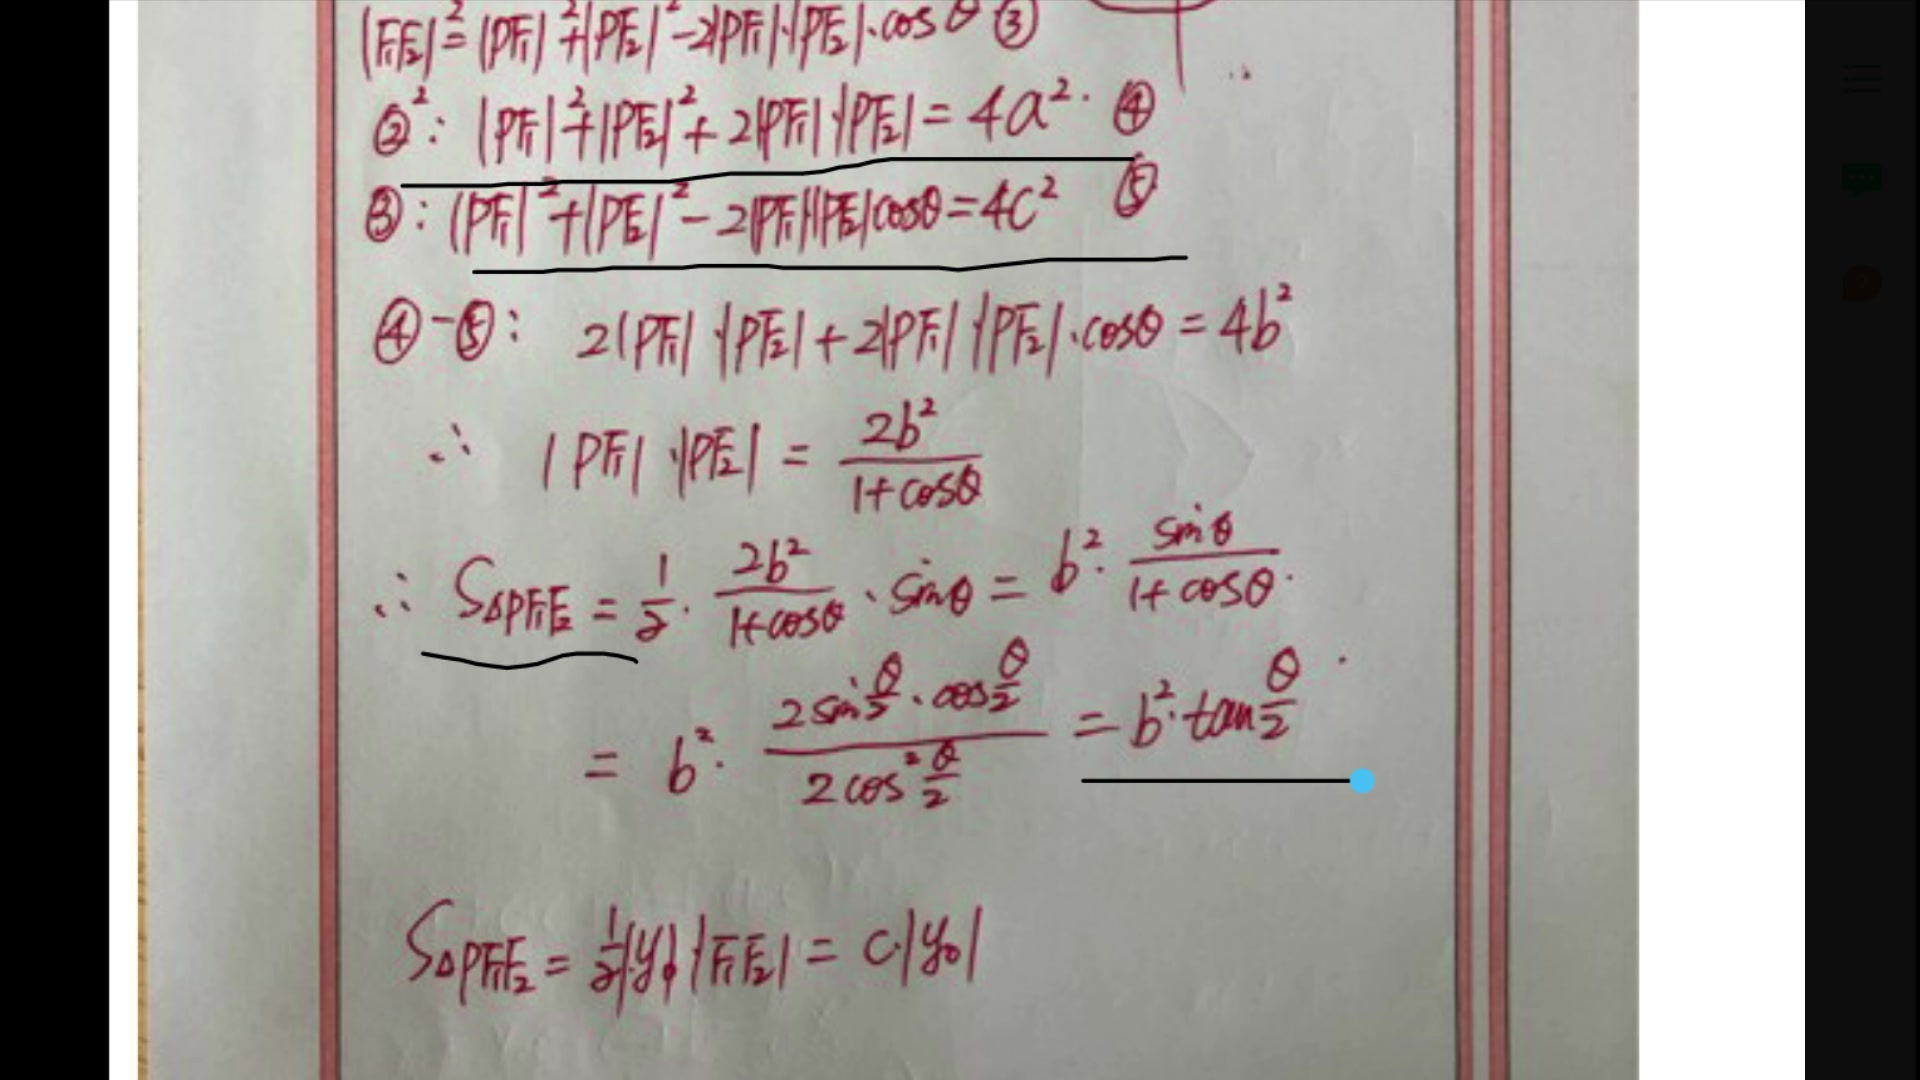 |F₁F₂|² = |PF₁|² + |PF₂|² - 2|PF₁|·|PF₂|·cosθ ③
②²: |PF₁|² + |PF₂|² + 2|PF₁|·|PF₂| = 4a². ④
③: |PF₁|² + |PF₂|² - 2|PF₁||PF₂|cosθ = 4c² ⑤
④-⑤: 2|PF₁|·|PF₂| + 2|PF₁|·|PF₂|·cosθ = 4b²
∴ |PF₁|·|PF₂| = 2b²/(1+cosθ)
∴ S△PF₁F₂ = 1/2 · 2b²/(1+cosθ) · sinθ = b² · sinθ/(1+cosθ).
= b² · (2sin θ/2 · cos θ/2)/(2cos² θ/2) = b² · tan θ/2
S△PF₁F₂ = 1/2|y₀|·|F₁F₂| = c·|y₀|